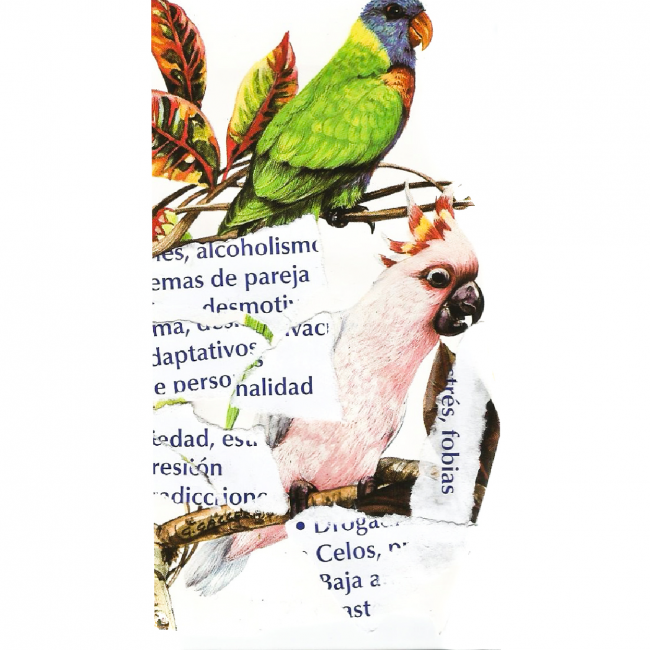 alcoholismo
emas de pareja
desmoti
ma,
vac
daptativos
e perso
nalidad
iedad, est
resión
adiccione
trés, fobias
• Droga
Celos,
Baja a
ast